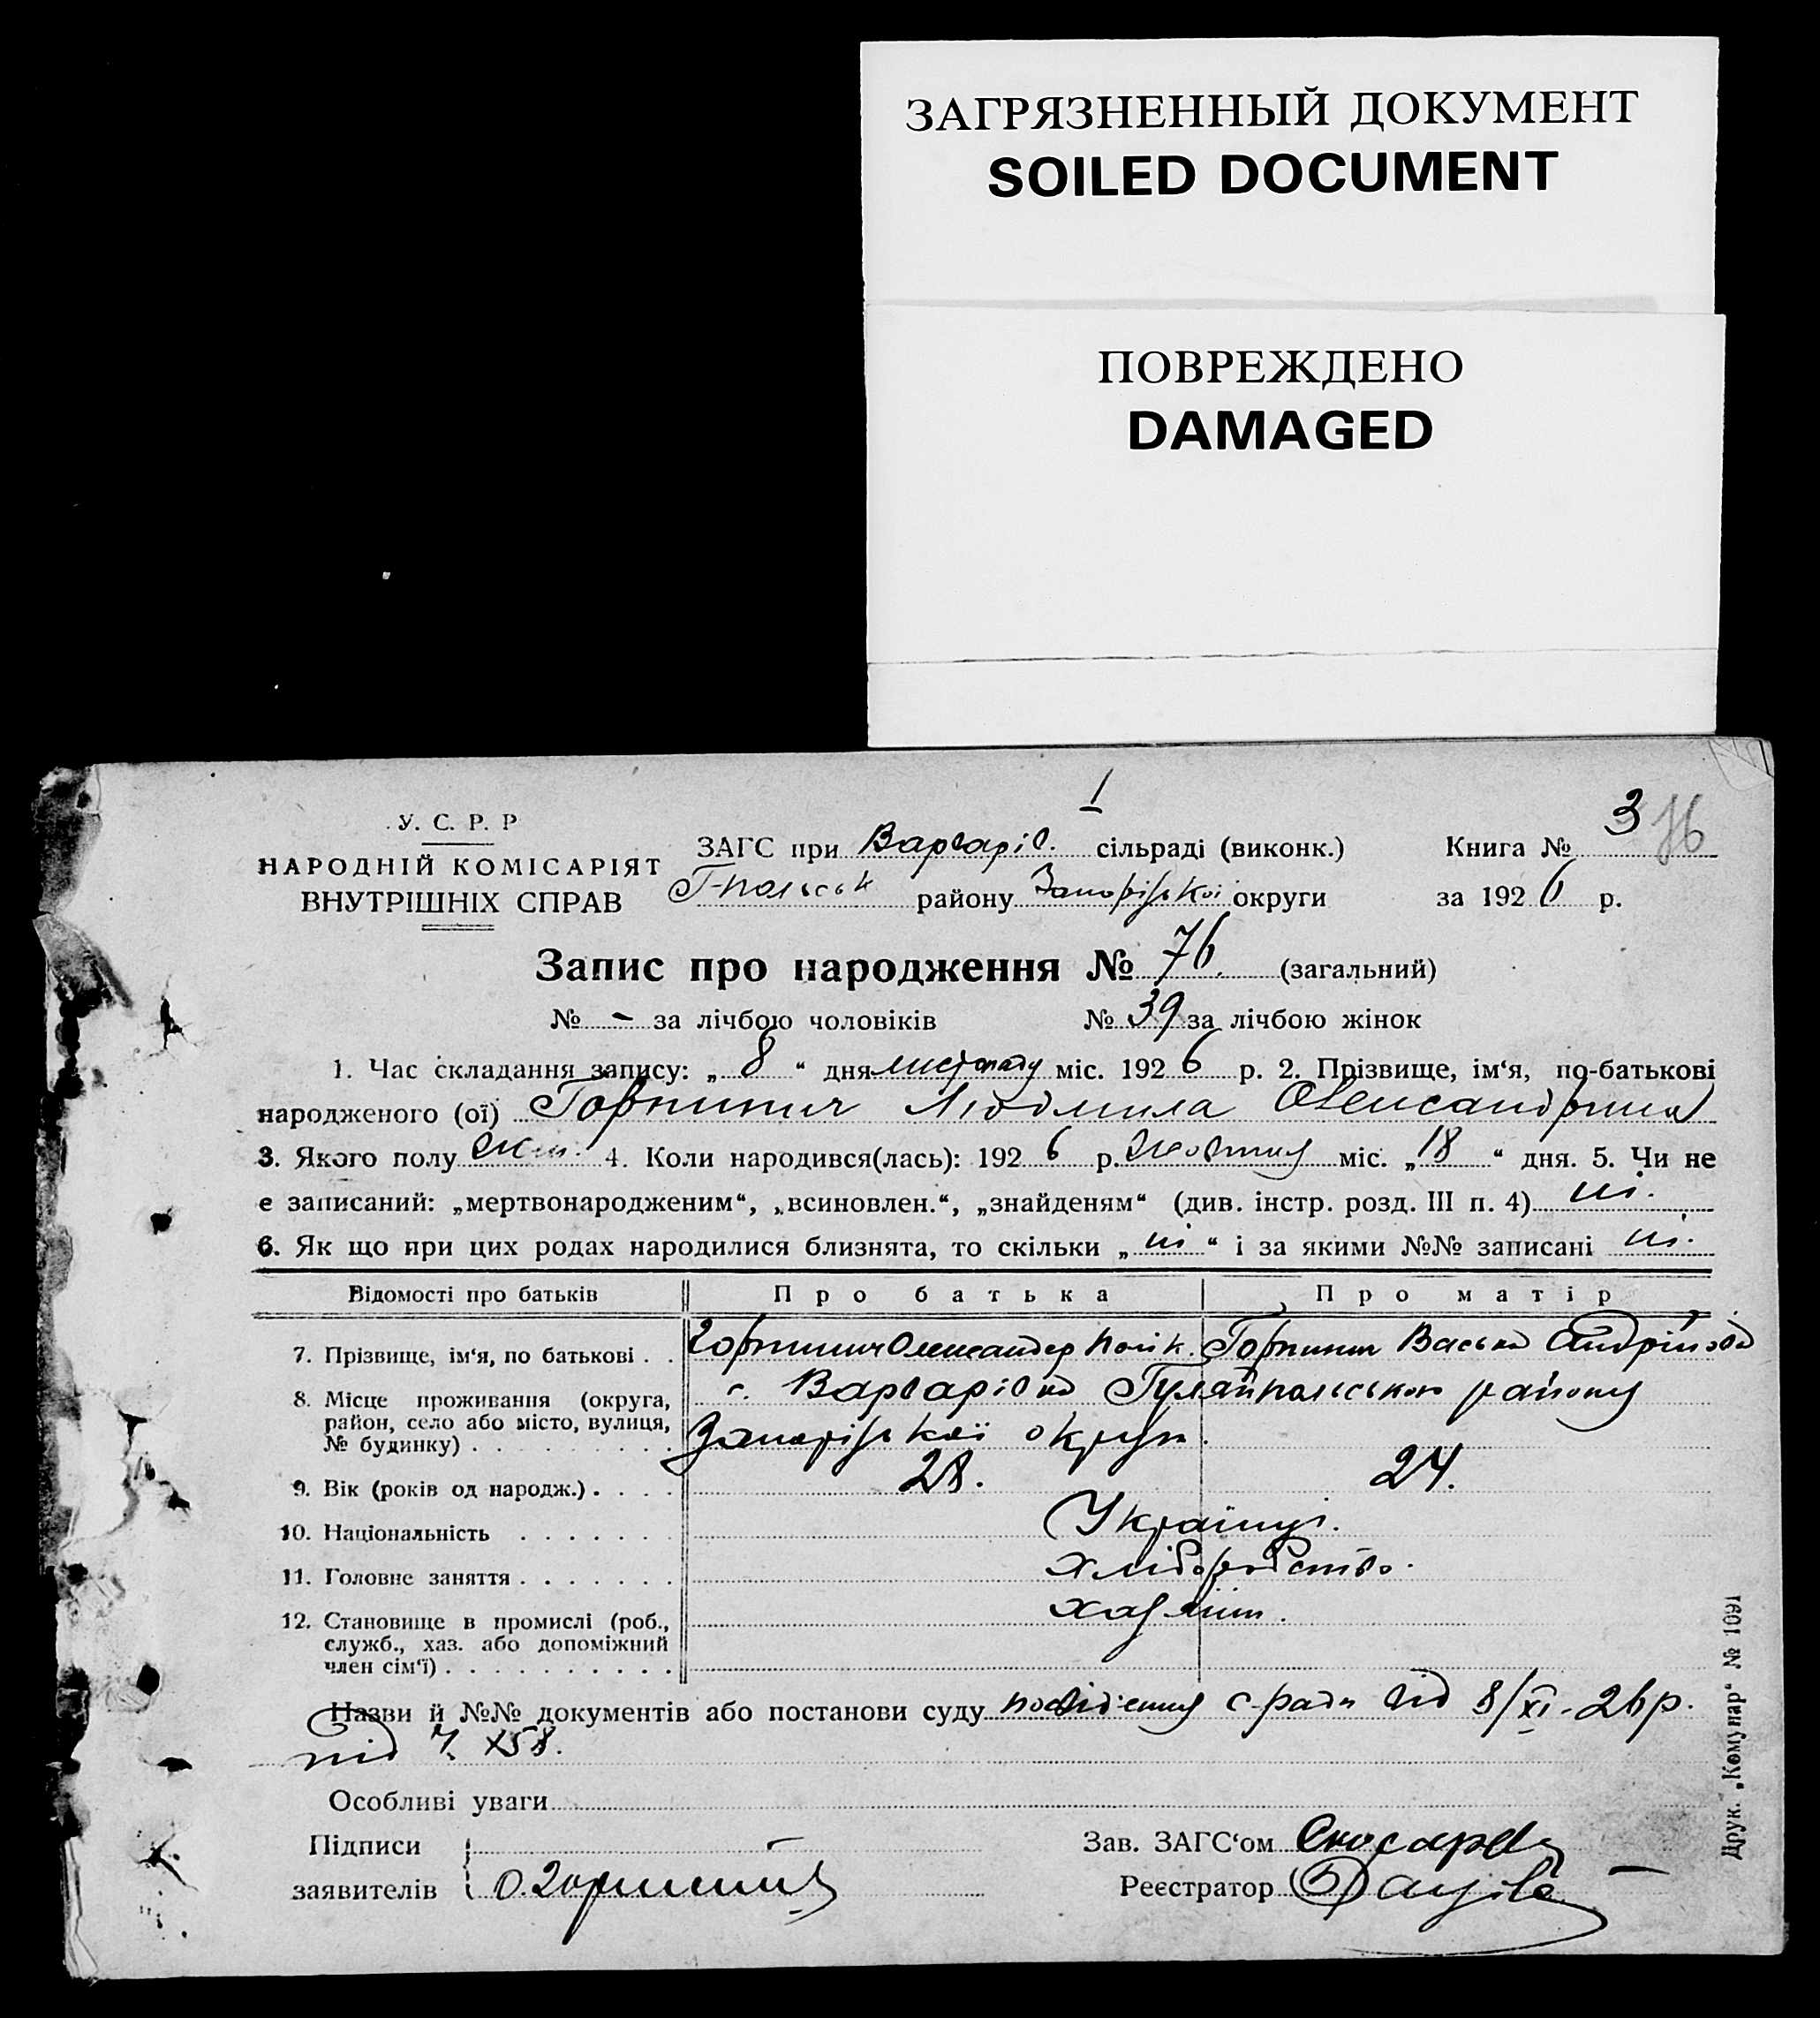 ЗАГРЯЗНЕННЫЙ ДОКУМЕНТ
SOILED DOCUMENT
ПОВРЕЖДЕНО
DAMAGED
1
У. С. Р. Р
НАРОДНІЙ КОМІСАРІЯТ
ВНУТРІШНІХ СПРАВ
ЗАГС при Варварів. сільраді (виконк.)
Г-польськ району Запорізької округи
Книга № 3 76
за 1926 р.
Запис про народження № 76. (загальний)
№ - за лічбою чоловіків № 39 за лічбою жінок
1. Час складання запису: „ 8 “ дня листопаду міс. 1926 р. 2. Прізвище, ім‘я, по-батькові
народженого (ої) Горпинич Людмила Олександрина
3. Якого полу жін. 4. Коли народився(лась): 1926 р. жовтня міс. „18“ дня. 5. Чи не
є записаний: „мертвонародженим“, „всиновлен.“, „знайденям“ (див. інстр. розд. III п. 4) ні.
6. Як що при цих родах народилися близнята, то скільки „ ні “ і за якими №№ записані ні.
Відомості про батьків Про батька Про матір
7. Прізвище, ім‘я, по батькові . . Горпинич Олександер Горпинич Васьна Андріївна
8. Місце проживання (округа, с. Варварівка Гуляйпольського району
район, село або місто, вулиця,
№ будинку) . . . . . . . . . Запорізької округи.
9. Вік (років од народж.) . . . . 28. 24.
10. Національність . . . . . . . Українці.
11. Головне заняття . . . . . . . хліборобство.
12. Становище в промислі (роб.,
служб., хаз. або допоміжний
член сім‘ї) . . . . . . . . . .
Назви й №№ документів або постанови суду посвідчення с-ради від 8/XI-26р.
під ч. 758.
Особливі уваги
Підписи
заявителів О. Горпинич
Зав. ЗАГС‘ом
Реєстратор
Друк. „Комунар“ № 1091